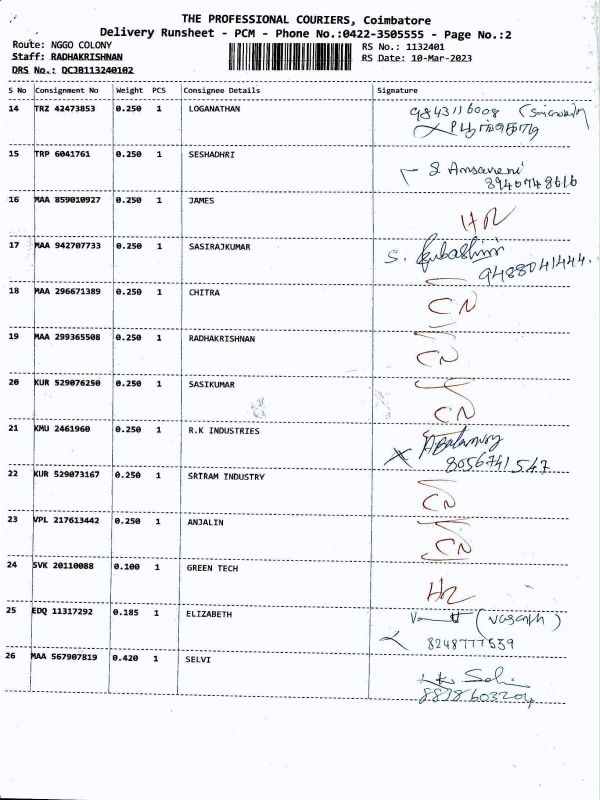 THE PROFESSIONAL COURIERS, Coimbatore
Delivery Runsheet - PCM - Phone No.:0422-3505555 - Page No.:2
Route: NGGO COLONY RS No.: 1132401
Staff: RADHAKRISHNAN RS Date: 10-Mar-2023
DRS No.: DCJB113240102
S No Consignment No Weight PCS Consignee Details Signature
14 TRZ 42473853 0.250 1 LOGANATHAN 9843116008
15 TRP 6041761 0.250 1 SESHADHRI S
8940748616
16 MAA 859010927 0.250 1 JAMES
17 MAA 942707733 0.250 1 SASIRAJKUMAR S.
9488041444.
18 MAA 296671389 0.250 1 CHITRA CN
19 MAA 299365508 0.250 1 RADHAKRISHNAN CN
20 KUR 529076250 0.250 1 SASIKUMAR CN
21 KMU 2461960 0.250 1 R.K INDUSTRIES
8056741547
22 KUR 529073167 0.250 1 SRIRAM INDUSTRY CN
23 VPL 217613442 0.250 1 ANJALIN CN
24 SVK 20110088 0.100 1 GREEN TECH
25 EDQ 11317292 0.185 1 ELIZABETH (Vasanth)
8248777539
26 MAA 567907819 0.420 1 SELVI